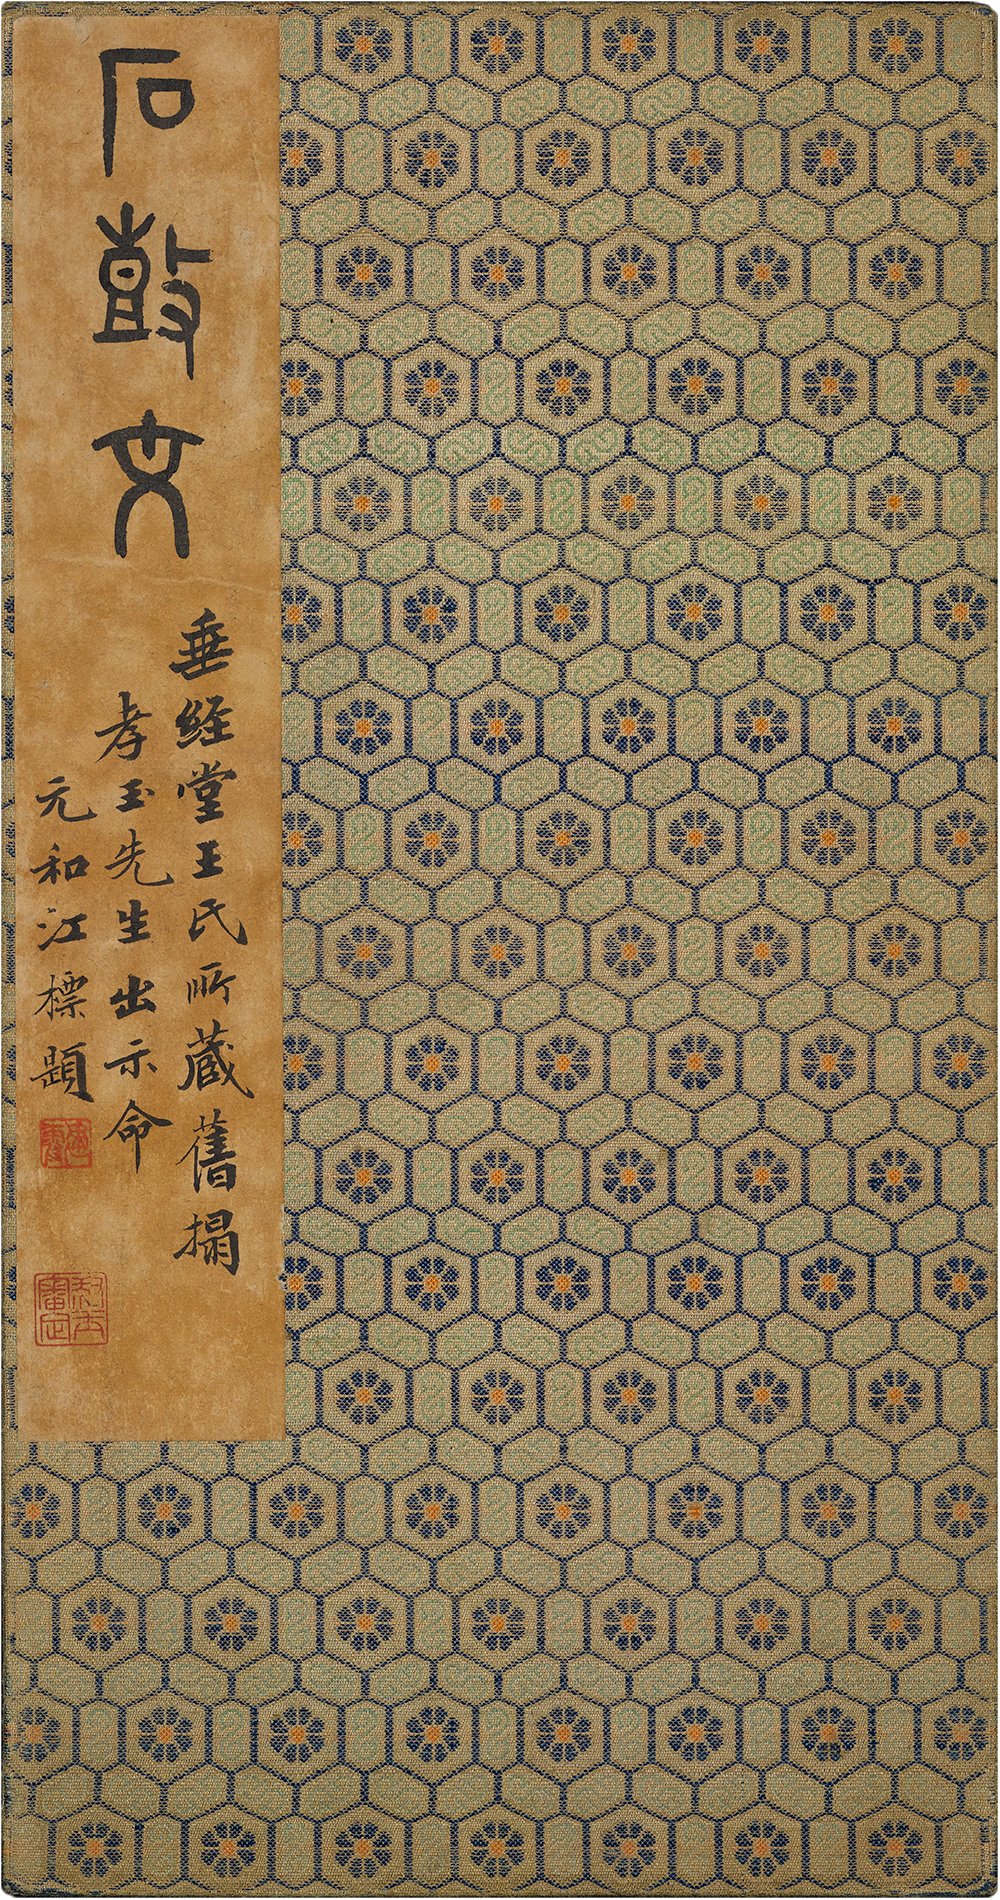 石鼓文
垂經堂王氏所藏舊搨
孝玉先生出示命
元和江標題